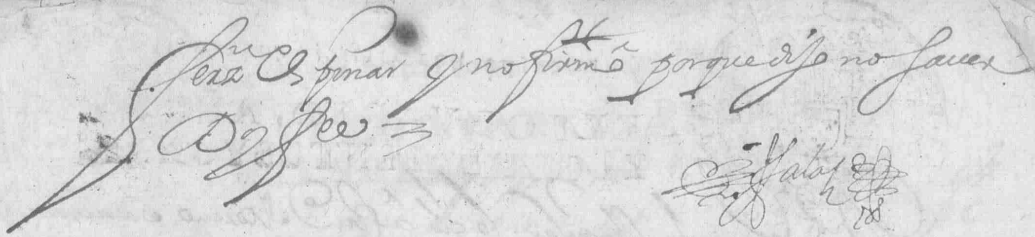 Espinar q no firmo porque dijo no saver
Doy fee